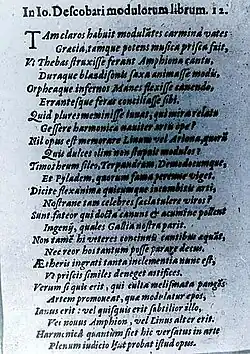 In Io. Descobari modulorum librum. 12.
TAm claros habuit modulātes carmina vates
Græcia, tamque potens musica prisca fuit,
Vt Thebas struxisse ferant Amphiona cantu,
Duraque blandisonis saxa animasse modis,
Orpheaque infernos Manes flexisse canendo,
Errantesque feras conciliasse sibi.
Quid plures meminisse iuuat, qui mira relatu
Gessere harmonica nauiter artis ope?
Nil opus est memorare Linum vel Ariona, quorū
Qui dulces olim non stupuit modulos?
Timotheum files, Terpandrum, Demodocumque,
Et Pyladem, quorum fama perenne viget.
Dicite flexanima quicumque incumbitis arti,
Nostrane tam celebres sæcla tulere viros?
Sunt fateor qui docta canunt & acumine pollent
Ingenij, quales Gallia nostra parit.
Non tamē hi veteres concinnis cantibus æquāt,
Nec reor hos tantum posse parare decus.
Æ iberis ingrati tanta inclementia nunc est,
Vt priscis similes deneget astifices.
Verum si quis erit, qui culta melismata pangēs
Artem promoueat, qua modulatur epos,
Ianus erit: vel quisquis erit subtilior illo,
Vel nouus Amphion, vel Linus alter erit.
Harmonica quantum siet hic versatus in arte
Plenum iudicio hoc probat istud opus.